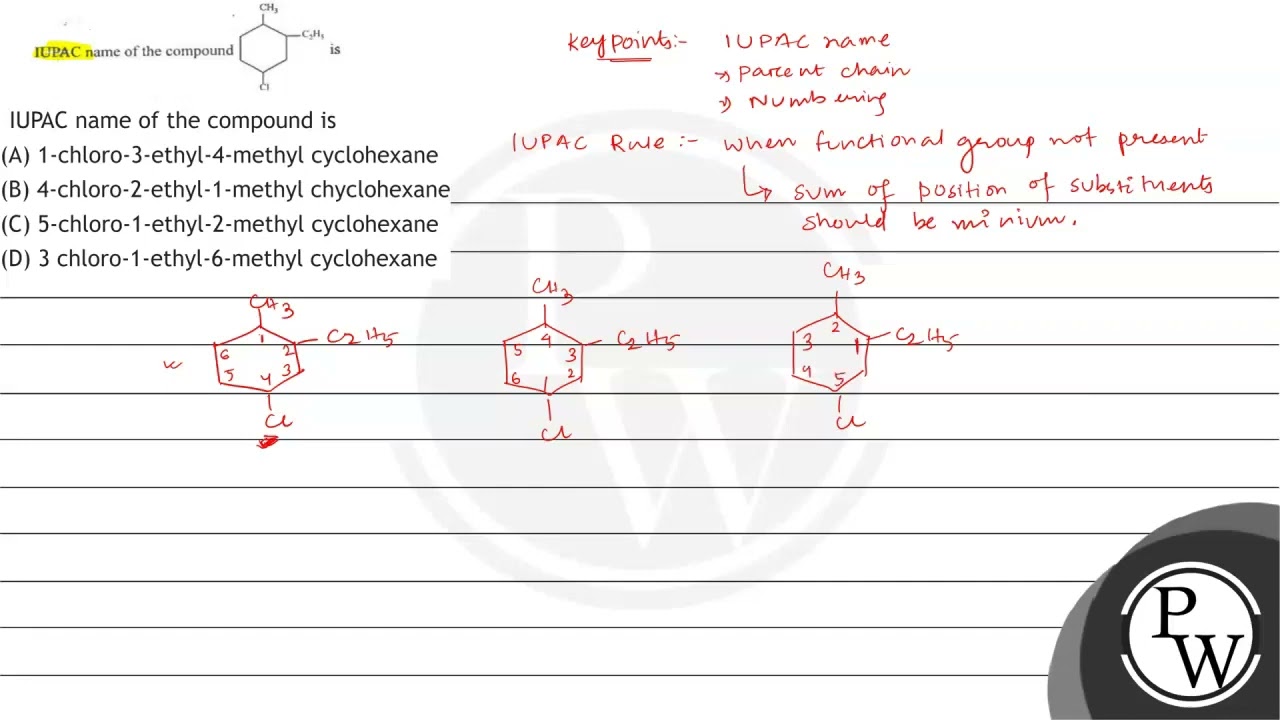 CH₃
C₂H₅
IUPAC name of the compound is
Cl
IUPAC name of the compound is
(A) 1-chloro-3-ethyl-4-methyl cyclohexane
(B) 4-chloro-2-ethyl-1-methyl chyclohexane
(C) 5-chloro-1-ethyl-2-methyl cyclohexane
(D) 3 chloro-1-ethyl-6-methyl cyclohexane
Key points:- IUPAC name
→ Parcent chain
→ Numbering
IUPAC Rule :- when functional group not present
↳ sum of position of substituents
should be minium.
CH3
C2H5
1
2
3
4
5
6
Cl
CH3
C2H5
4
3
2
5
6
Cl
CH3
C2H5
2
1
3
4
5
Cl
PW
P
W